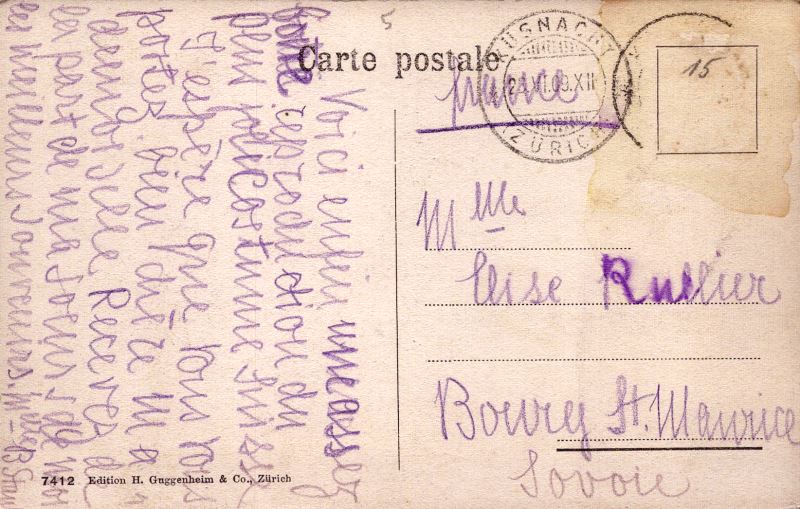 5
Carte postale
KÜSNACHT
ZÜRICH
15
france
Mlle
Elise Rullier
Bourg St. Maurice
Savoie
Voici enfin une assez
bonne reproduction du
demi costume suisse
J'espère que vous vous
portez bien chère Ma
demoiselle Recevez de
la part de ma soeur & de moi
les meilleurs souvenirs.
7412 Edition H. Guggenheim & Co., Zürich